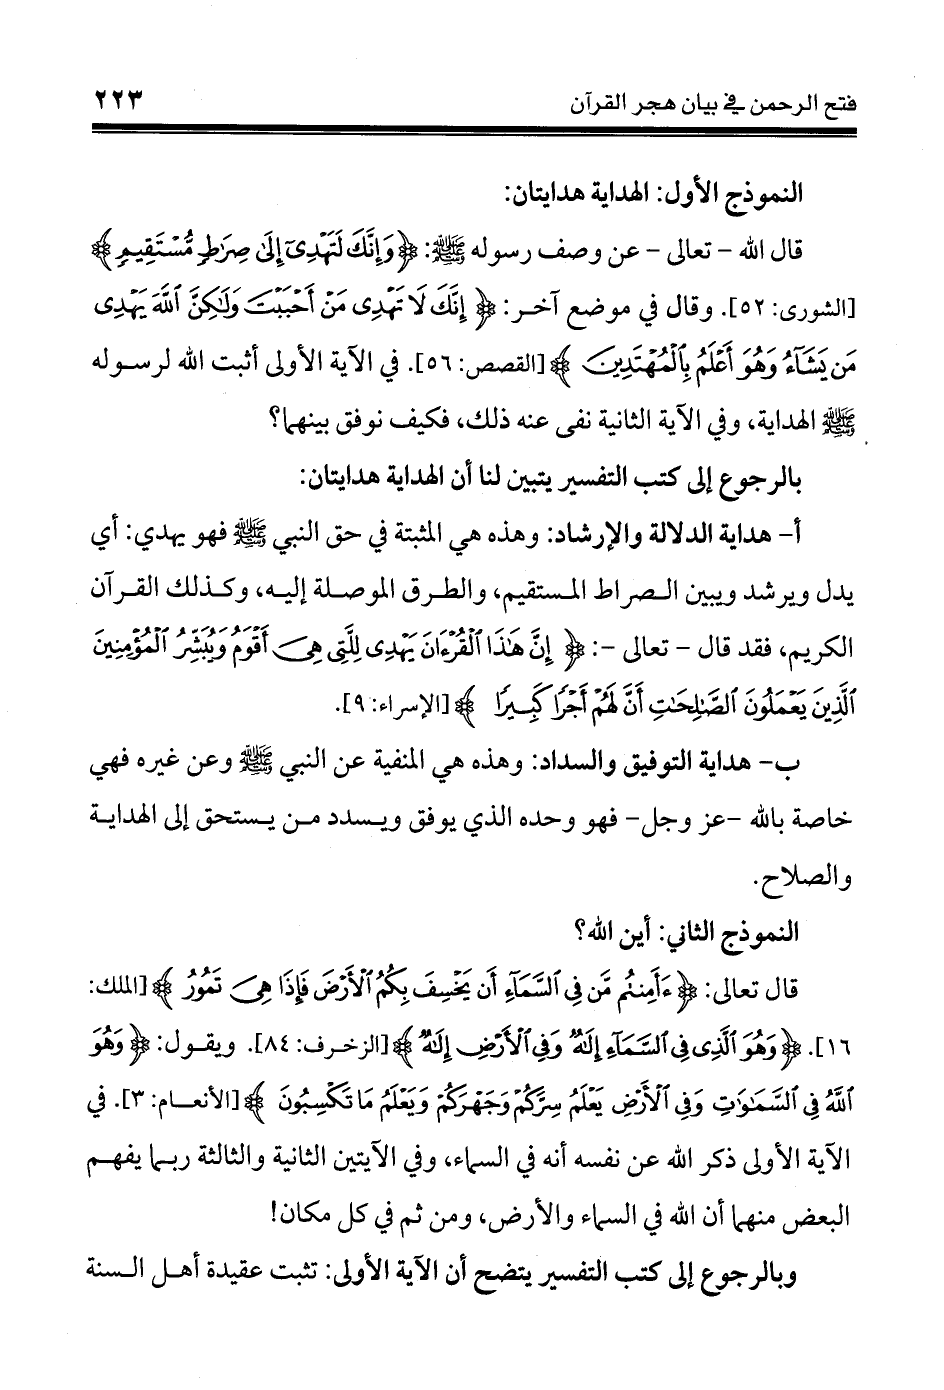 فتح الرحمن في بيان هجر القرآن ٢٢٣
النموذج الأول: الهداية هدايتان:
قال الله - تعالى - عن وصف رسوله ﷺ: ﴿وَإِنَّكَ لَتَهْدِىٓ إِلَىٰ صِرَٰطٍ مُّسْتَقِيمٍ﴾
[الشورى: ٥٢]. وقال في موضع آخر: ﴿إِنَّكَ لَا تَهْدِى مَنْ أَحْبَبْتَ وَلَٰكِنَّ ٱللَّهَ يَهْدِى
مَن يَشَآءُ وَهُوَ أَعْلَمُ بِٱلْمُهْتَدِينَ﴾ [القصص: ٥٦]. في الآية الأولى أثبت الله لرسوله
ﷺ الهداية، وفي الآية الثانية نفى عنه ذلك، فكيف نوفق بينهما؟
بالرجوع إلى كتب التفسير يتبين لنا أن الهداية هدايتان:
أ- هداية الدلالة والإرشاد: وهذه هي المثبتة في حق النبي ﷺ فهو يهدي: أي
يدل ويرشد ويبين الصراط المستقيم، والطرق الموصلة إليه، وكذلك القرآن
الكريم، فقد قال - تعالى -: ﴿إِنَّ هَٰذَا ٱلْقُرْءَانَ يَهْدِى لِلَّتِى هِىَ أَقْوَمُ وَيُبَشِّرُ ٱلْمُؤْمِنِينَ
ٱلَّذِينَ يَعْمَلُونَ ٱلصَّٰلِحَٰتِ أَنَّ لَهُمْ أَجْرًا كَبِيرًا﴾ [الإسراء: ٩].
ب- هداية التوفيق والسداد: وهذه هي المنفية عن النبي ﷺ وعن غيره فهي
خاصة بالله -عز وجل- فهو وحده الذي يوفق ويسدد من يستحق إلى الهداية
والصلاح.
النموذج الثاني: أين الله؟
قال تعالى: ﴿ءَأَمِنتُم مَّن فِى ٱلسَّمَآءِ أَن يَخْسِفَ بِكُمُ ٱلْأَرْضَ فَإِذَا هِىَ تَمُورُ﴾ [الملك:
١٦]. ﴿وَهُوَ ٱلَّذِى فِى ٱلسَّمَآءِ إِلَٰهٌ وَفِى ٱلْأَرْضِ إِلَٰهٌ﴾ [الزخرف: ٨٤]. ويقول: ﴿وَهُوَ
ٱللَّهُ فِى ٱلسَّمَٰوَٰتِ وَفِى ٱلْأَرْضِ يَعْلَمُ سِرَّكُمْ وَجَهْرَكُمْ وَيَعْلَمُ مَا تَكْسِبُونَ﴾ [الأنعام: ٣]. في
الآية الأولى ذكر الله عن نفسه أنه في السماء، وفي الآيتين الثانية والثالثة ربما يفهم
البعض منهما أن الله في السماء والأرض، ومن ثم في كل مكان!
وبالرجوع إلى كتب التفسير يتضح أن الآية الأولى: تثبت عقيدة أهل السنة